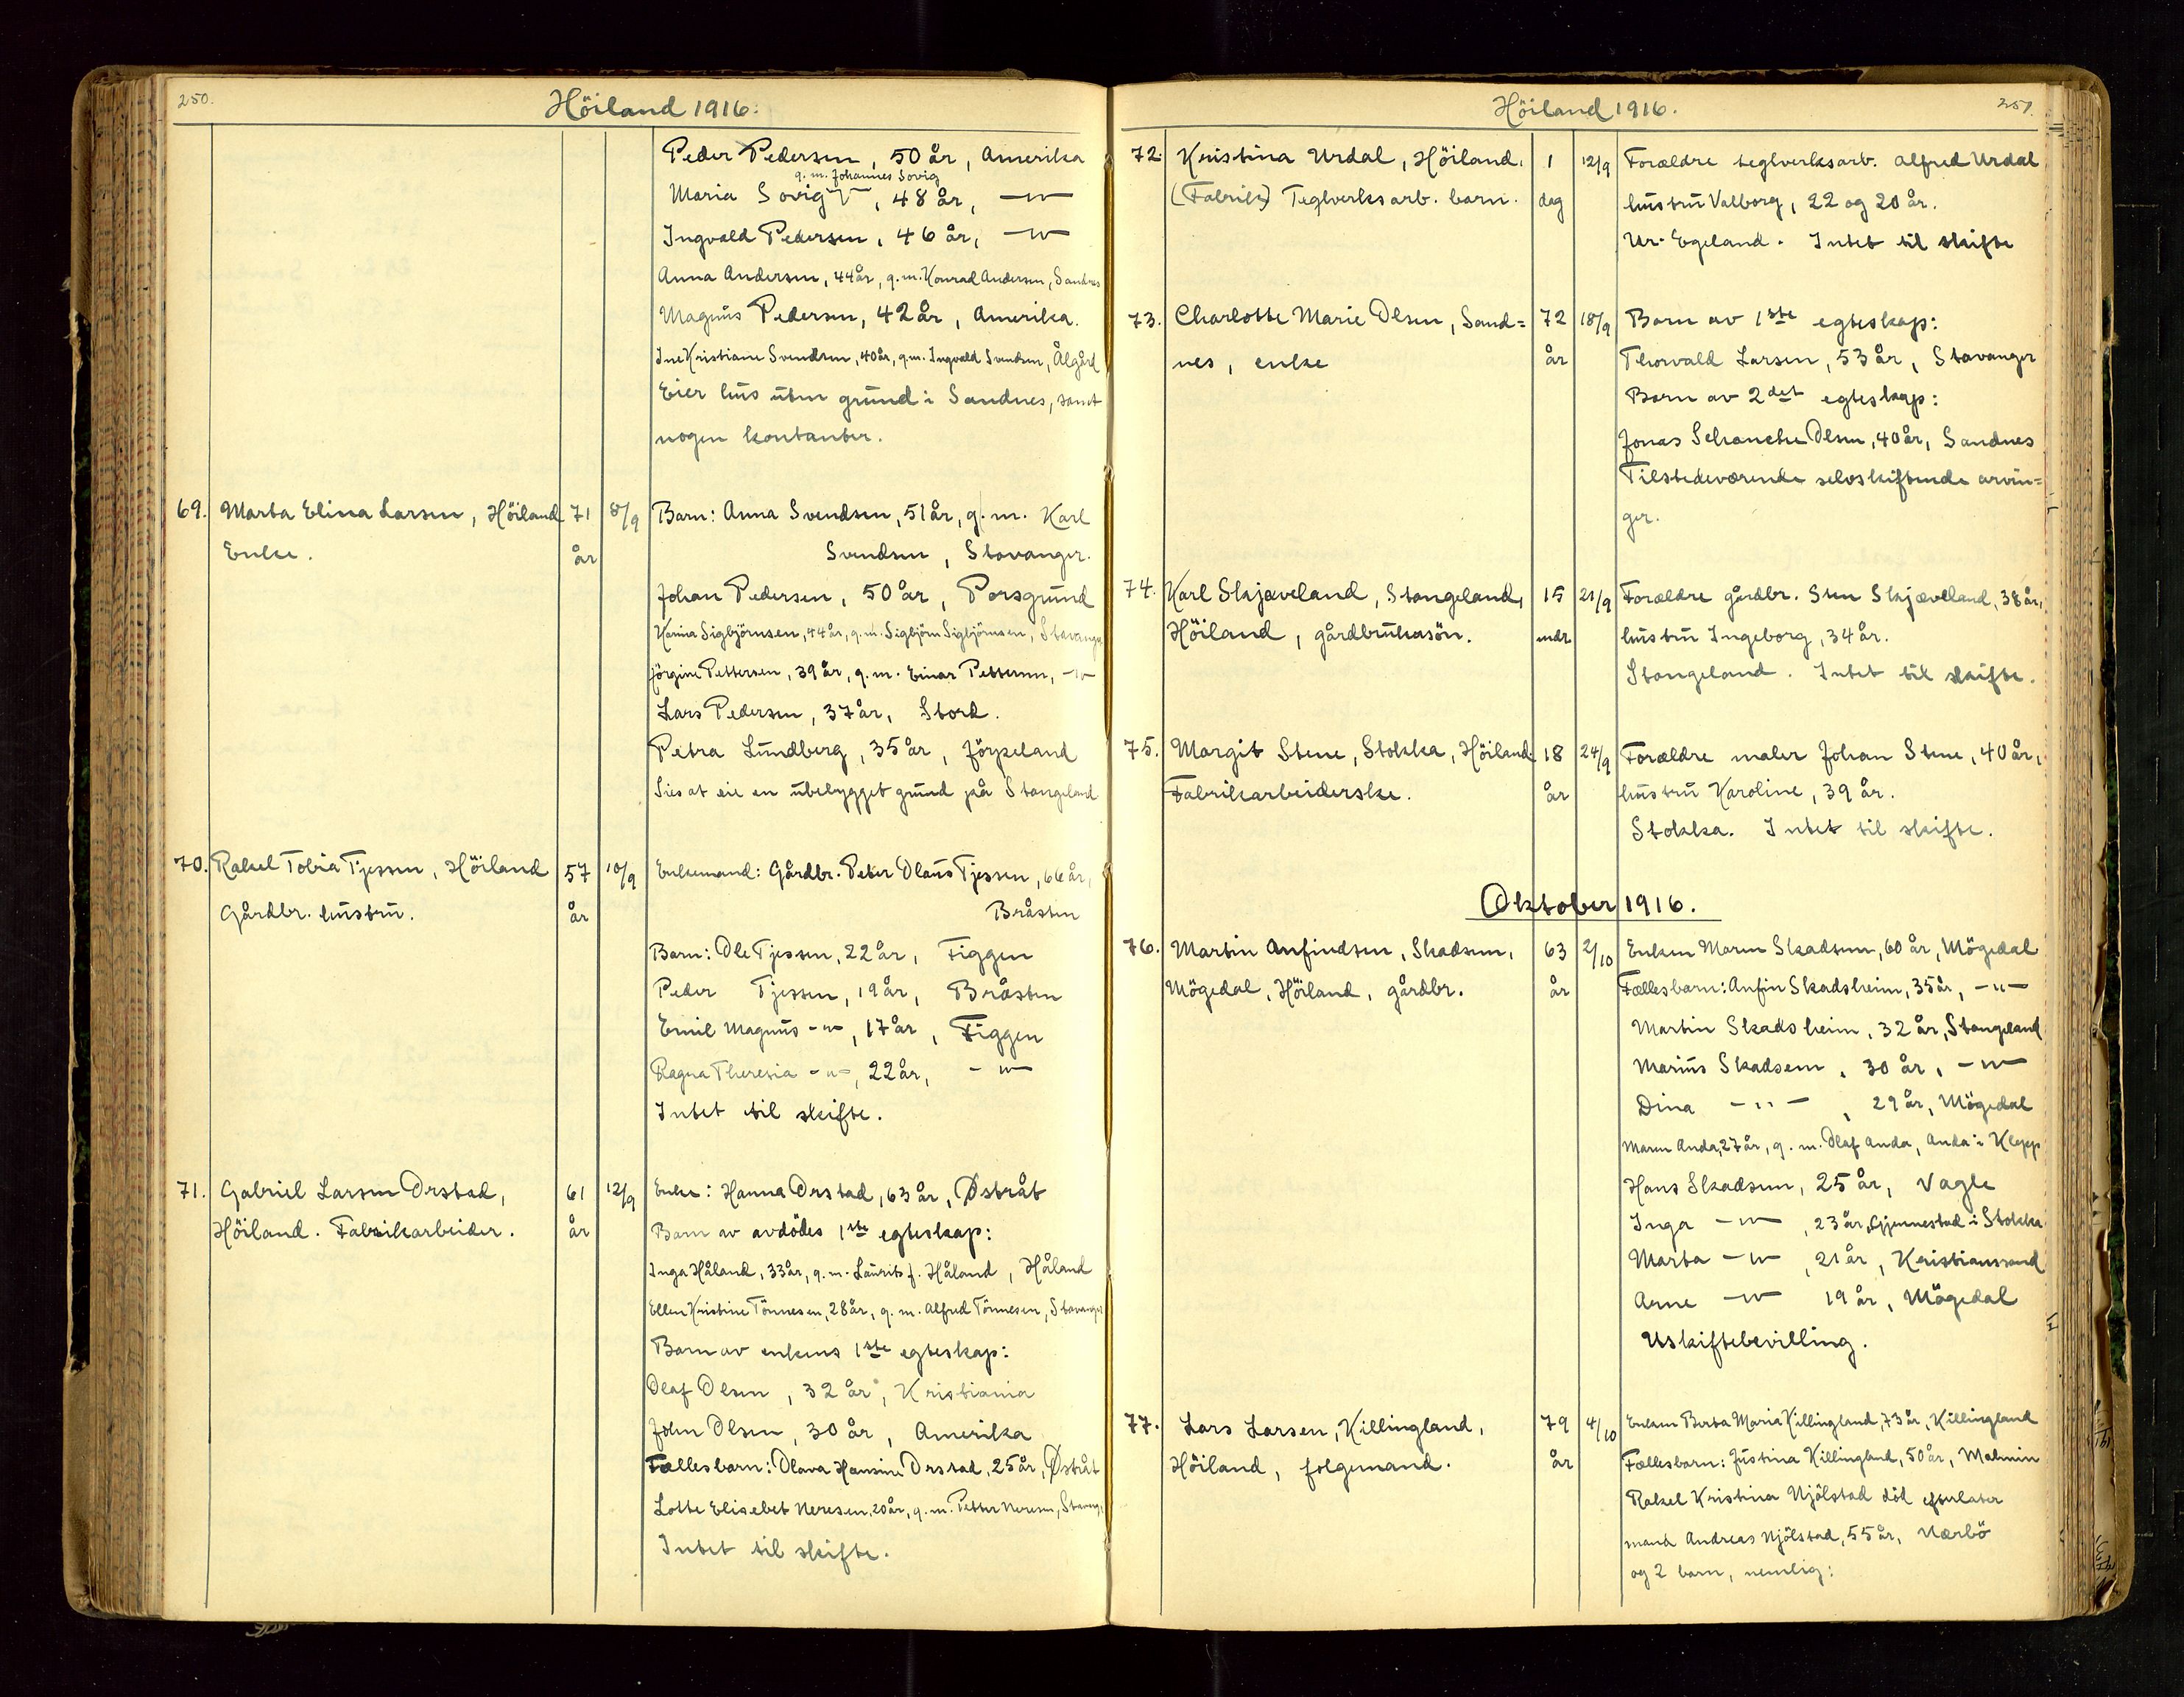 250.
Höiland 1916.
Peder Pedersen, 50 år, Amerika
g. m. Johannes Sovig
Maria Sovig, 48 år, -"-
Ingvald Pedersen, 46 år, -"-
Anna Andersen, 44 år, g. m. Konrad Andersen, Sandnes
Magnus Pedersen, 42 år, Amerika.
Ine Kristiane Svendsen, 40 år, g. m. Ingvald Svendsen, Ålgård
Eier hus uten grund i Sandnes, samt
nogen kontanter.
69. Marta Elina Larsen, Höiland 71 8/9 Barn: Anna Svendsen, 51 år, g. m. Karl
Enke. år Svendsen, Stavanger.
Johan Pedersen, 50 år, Porsgrund
Karina Sigbjörnsen, 44 år, g. m. Sigbjörn Sigbjörnsen, Stavanger
Jörgine Pettersen, 39 år, g. m. Einar Pettersen, -"-
Lars Pedersen, 37 år, Stord.
Petra Lundberg, 35 år, Jörpeland
Sies at eie en ubebygget grund på Stangeland
70. Rakel Tobia Tjessen, Höiland 57 10/9 Enkemand: Gårdbr. Peter Olaus Tjessen, 66 år,
Gårdbr. hustru. år Bråsten
Barn: Ole Tjessen, 22 år, Figgen
Peder Tjessen, 19 år, Bråsten
Emil Magnus -"-, 17 år, Figgen
Ragna Theresia -"-, 22 år, -"-
Intet til skifte.
71. Gabriel Larsen Orstad, 61 12/9 Enke: Hanna Orstad, 63 år, Østråt
Höiland. Fabrikarbeider. år Barn av avdödes 1ste egteskap:
Inga Håland, 33 år, g. m. Laurits J. Håland, Håland
Ellen Kristine Tönnesen, 28 år, g. m. Alfred Tönnesen, Stavanger
Barn av enkens 1ste egteskap:
Olaf Olsen, 32 år, Kristiania
John Olsen, 30 år, Amerika
Fællesbarn: Olava Hansine Orstad, 25 år, Østråt
Lotte Elisebet Neresen, 20 år, g. m. Petter Neresen, Stavang.
Intet til skifte.
251.
Höiland 1916.
72. Kristina Urdal, Höiland, 1 12/9 Forældre teglverksarb. Alfred Urdal
(Fabrik) Teglverksarb. barn. dag hustru Valborg, 22 og 20 år.
Ur. Egeland. Intet til skifte
73. Charlotte Marie Olsen, Sand= 72 18/9 Barn av 1ste egteskap:
nes, enke år Thorvald Larsen, 53 år, Stavanger
Barn av 2det egteskap:
Jonas Schanche Olsen, 40 år, Sandnes
Tilstedeværende selvskiftende arvin=
ger.
74. Karl Skjæveland, Stangeland, 15 21/9 Forældre gårdbr. Sten Skjæveland, 38 år,
Höiland, gårdbrukasön. mdr hustru Ingeborg, 34 år.
Stangeland. Intet til skifte.
75. Margit Stene, Stokka, Höiland. 18 24/9 Forældre maler Johan Stene, 40 år,
Fabrikarbeiderske. år hustru Karoline, 39 år.
Stokka. Intet til skifte.
Oktober 1916.
76. Martin Anfindsen, Skadsem, 63 2/10 Enken Maren Skadsem, 60 år, Mögedal
Mögedal, Höiland, gårdbr. år Fællesbarn: Anfin Skadsheim, 35 år, -"-
Martin Skadsheim, 32 år, Stangeland
Marius Skadsem, 30 år, -"-
Dina -"-, 29 år, Mögedal
Maren Anda, 27 år, g. m. Olaf Anda, Anda i Klepp
Hans Skadsem, 25 år, Vagle
Inga -"-, 23 år, Gjennestad i Stokke
Marta -"-, 21 år, Kristianssand
Arne -"- 19 år, Mögedal
Uskiftebevilling.
77. Lars Larsen, Killingland, 79 4/10 Enken Berta Maria Killingland, 73 år, Killingland
Höiland, folgemand. år Fællesbarn: Justina Killingland, 50 år, Malmin
Rakel Kristina Njölstad död efterlater
mand Andreas Njölstad, 55 år, Nærbö
og 2 barn, nemlig: